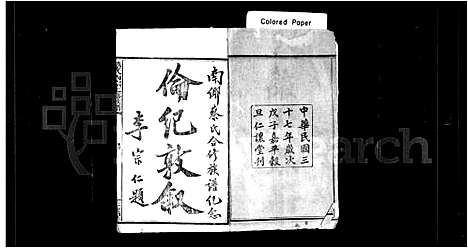 Colored Paper
南鄉蔡氏合修族譜紀念
倫紀敦叙
李宗仁題
中華民國三
十七年歲次
戊子嘉平穀
旦仁讓堂刊